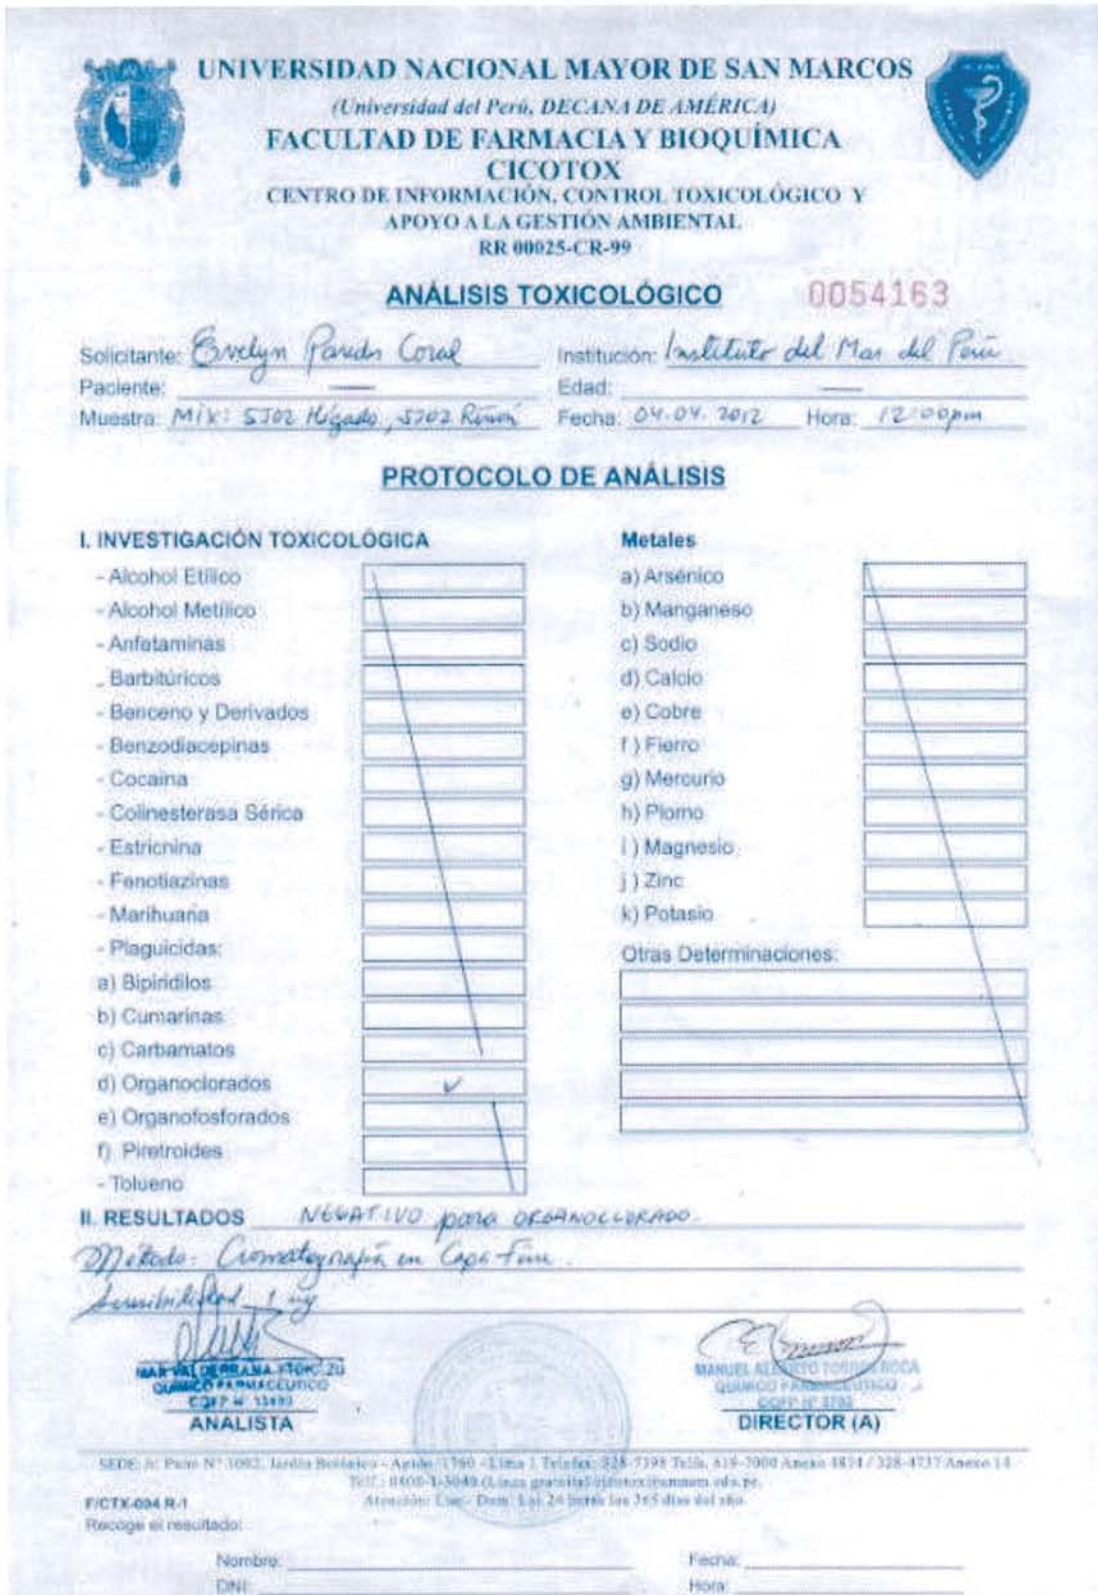 UNIVERSIDAD NACIONAL MAYOR DE SAN MARCOS
(Universidad del Perú, DECANA DE AMÉRICA)
FACULTAD DE FARMACIA Y BIOQUÍMICA
CICOTOX
CENTRO DE INFORMACIÓN, CONTROL TOXICOLÓGICO Y
APOYO A LA GESTIÓN AMBIENTAL
RR 00025-CR-99
ANÁLISIS TOXICOLÓGICO 0054163
Solicitante: Evelyn Paredes Coral Institución: Instituto del Mar del Perú
Paciente: — Edad: —
Muestra: MIX: SJ02 Hígado, SJ02 Riñón Fecha: 04.04.2012 Hora: 12:00pm
PROTOCOLO DE ANÁLISIS
I. INVESTIGACIÓN TOXICOLÓGICA
- Alcohol Etílico
- Alcohol Metílico
- Anfetaminas
- Barbitúricos
- Benceno y Derivados
- Benzodiacepinas
- Cocaina
- Colinesterasa Sérica
- Estricnina
- Fenotiazinas
- Marihuana
- Plaguicidas:
a) Bipiridilos
b) Cumarinas
c) Carbamatos
d) Organoclorados ✓
e) Organofosforados
f) Piretroides
- Tolueno
Metales
a) Arsénico
b) Manganeso
c) Sodio
d) Calcio
e) Cobre
f) Fierro
g) Mercurio
h) Plomo
i) Magnesio
j) Zinc
k) Potasio
Otras Determinaciones:
II. RESULTADOS NEGATIVO para ORGANOCLORADO.
Método: Cromatografía en Capa Fina.
Sensibilidad 1 ug
QUÍMICO FARMACÉUTICO
ANALISTA
MANUEL ALBERTO TORRES ROCA
QUÍMICO FARMACÉUTICO
DIRECTOR (A)
SEDE: Jr. Puno N° 1002, Jardín Botánico - Aptdo. 1760 - Lima 1 Telefax: 328-7398 Telfs. 619-7000 Anexo 4814 / 328-4737 Anexo 14
Telf.: 0800-1-3040 (Línea gratuita)
Atención: Lun - Dom. Las 24 horas los 365 días del año.
F/CTX-004 R-1
Recoge el resultado:
Nombre: Fecha:
DNI: Hora: